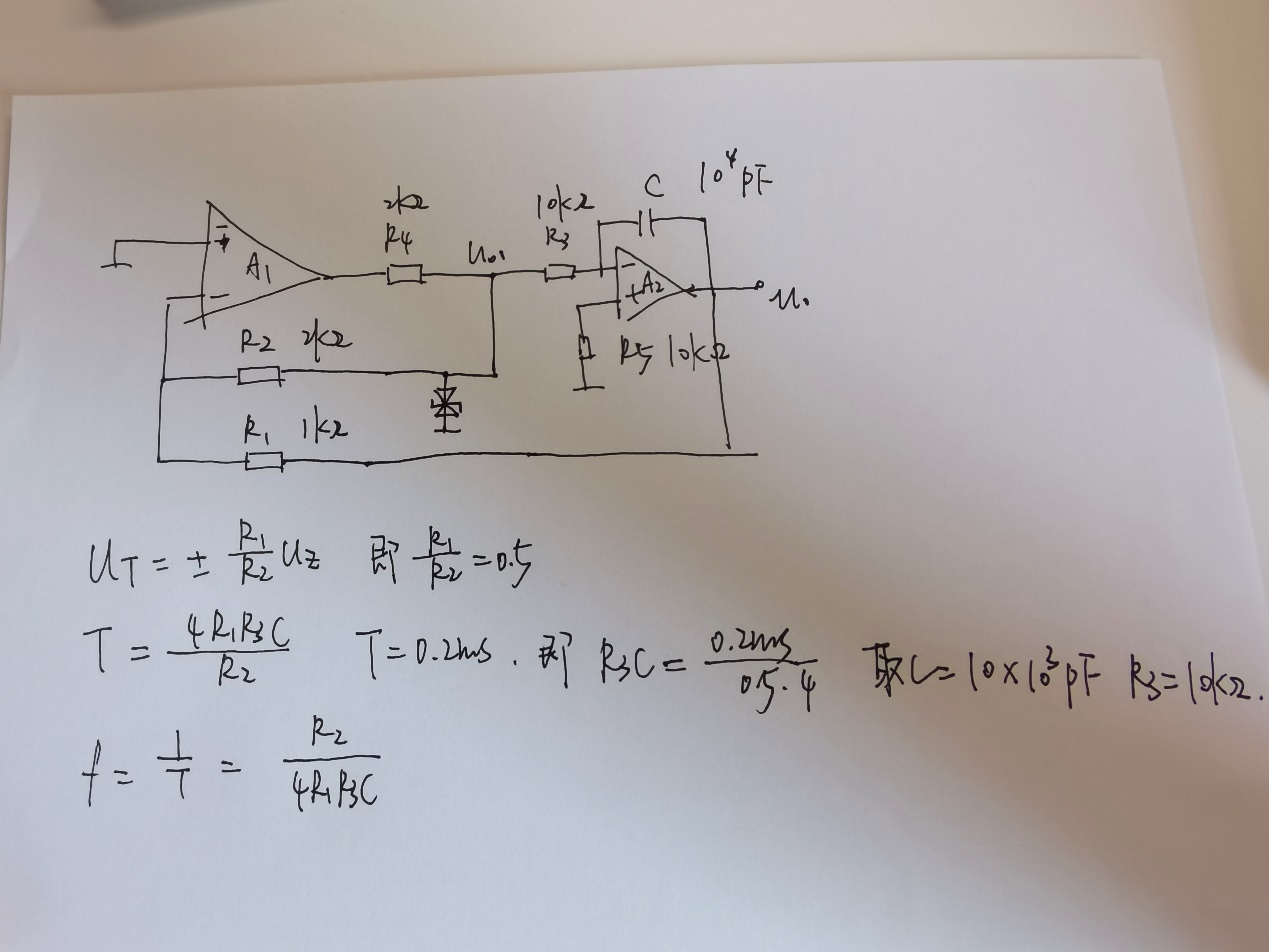 10⁴pF
2kΩ 10kΩ C
R4 U₀₁ R3
A1 - + A2 u₀
R2 2kΩ R5 10kΩ
R1 1kΩ
U_T = ± R1/R2 Uz 即 R1/R2 = 0.5
T = 4R1R3C/R2 T = 0.2ms. 即 R3C = 0.2ms/0.5·4 取C = 10×10³pF R3 = 10kΩ.
f = 1/T = R2/4R1R3C